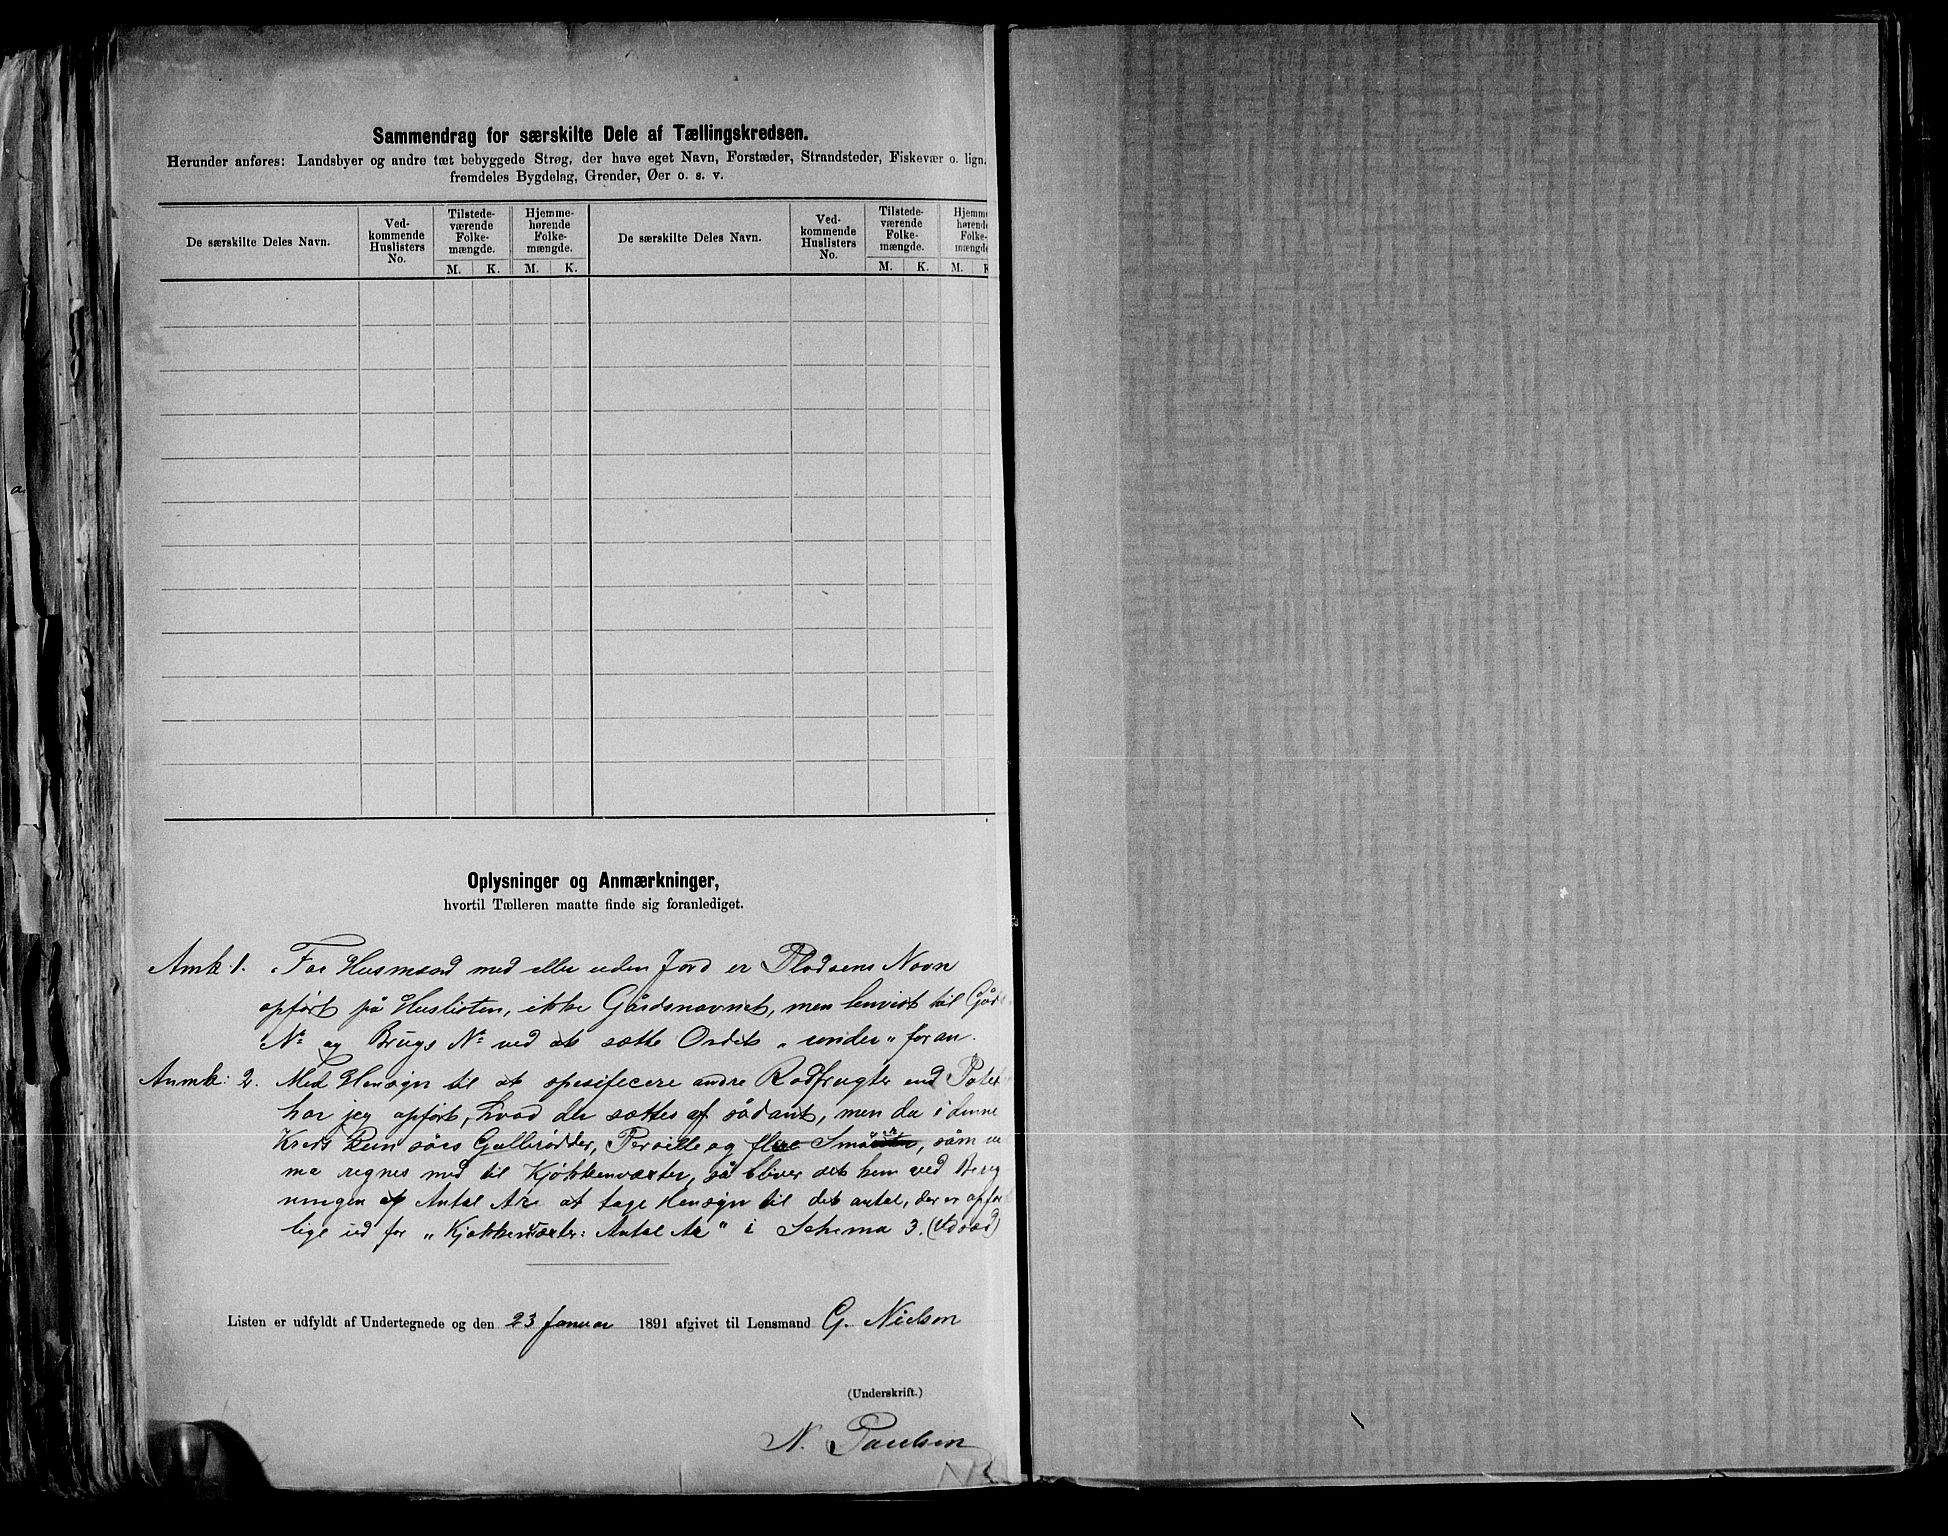 Sammendrag for særskilte Dele af Tællingskredsen.
Herunder anføres: Landsbyer og andre tæt bebyggede Strøg, der have eget Navn, Forstæder, Strandsteder, Fiskevær o. lign.
fremdeles Bygdelag, Grender, Øer o. s. v.
De særskilte Deles Navn.
Ved-
kommende
Huslisters
No.
Tilstede-
værende
Folke-
mængde.
M. K.
Hjemme-
hørende
Folke-
mængde.
M. K.
De særskilte Deles Navn.
Ved-
kommende
Huslisters
No.
Tilstede-
værende
Folke-
mængde.
M. K.
Hjemme
hørende
Folke-
mængde
M. K
Oplysninger og Anmærkninger,
hvortil Tælleren maatte finde sig foranlediget.
Amk 1. For Husmænd med eller uden Jord er Pladsens Navn
opført på Huslisten, ikke Gårdsnavnet, men henvist til
No og Brugs No ved at sætte Ordet „under" foran.
Anmk: 2. Med Hensyn til at spesificere andre Rodfrugter end Potet
har jeg opført, hvad der sættes af sådant, men da i denne
Kreds kun såes Gullerødder, Persille og som
ma regnes med til Kjøkkenvæxter, så bliver det kun ved Bereg
ningen af Antal Ar at tage Hensyn til det antal, der er opfør
lige ud for „Kjøkkenvæxter: Antal Ar" i Schema 3. (Udsæd)
Listen er udfyldt af Undertegnede og den 23 Januar 1891 afgivet til Lensmand G. Nielsen
(Underskrift.)
N. Paulsen